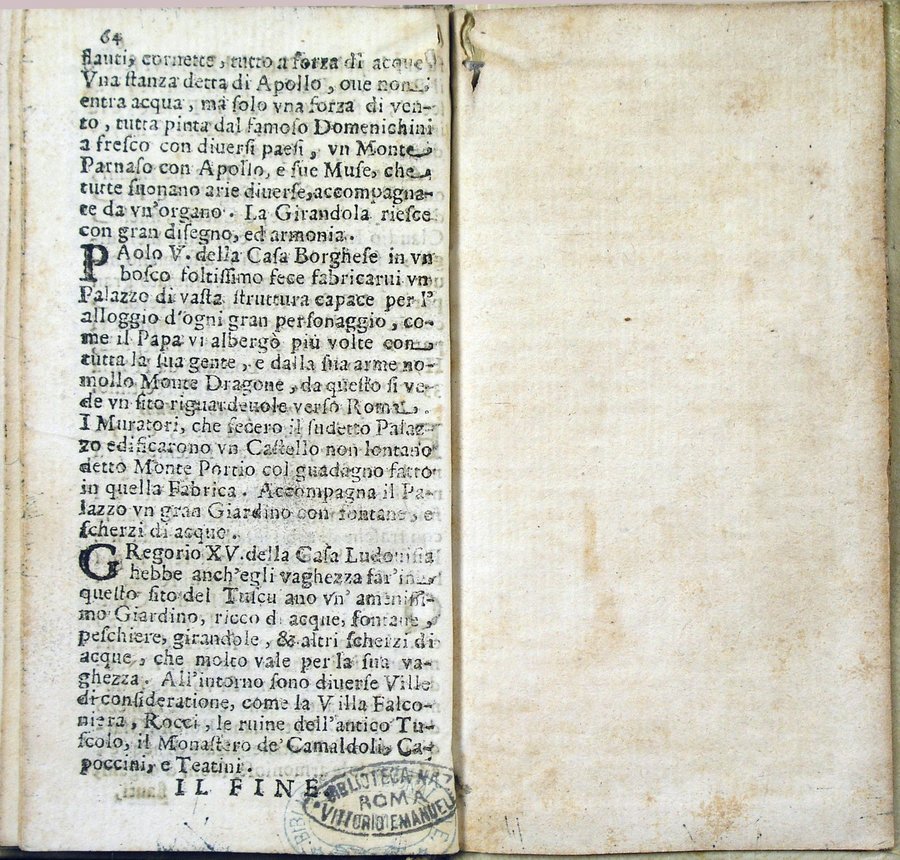 64
flauti, cornette, tutto a forza di acque
Vna ſtanza detta di Apollo, oue non
entra acqua, mà ſolo vna forza di ven-
to, tutta pinta dal famoſo Domenichini
a freſco con diuerſi paeſi, vn Monte
Parnaſo con Apollo, e ſue Muſe, che
tutte ſuonano arie diuerſe, accompagna-
te da vn'organo. La Girandola rieſce
con gran diſegno, ed armonia.
PAolo V. della Caſa Borgheſe in vn
boſco foltiſſimo fece fabricarui vn
Palazzo di vaſta ſtruttura capace per l'
alloggio d'ogni gran perſonaggio, co-
me il Papa vi albergò più volte con
tutta la ſua gente, e dalla ſua arme no-
mollo Monte Dragone, da queſto ſi ve-
de vn ſito riguardeuole verſo Roma.
I Muratori, che fecero il ſudetto Palaz-
zo edificarono vn Caſtello non lontano
detto Monte Portio col guadagno fatto
in quella Fabrica. Accompagna il Pa-
lazzo vn gran Giardino con fontane, e
ſcherzi di acque.
GRegorio XV. della Caſa Ludouiſia
hebbe anch'egli vaghezza far'in
queſto ſito del Tuſcu ano vn' ameniſſi-
mo Giardino, ricco di acque, fontane,
peſchiere, girandole, & altri ſcherzi di
acque, che molto vale per la ſua va-
ghezza. All'intorno ſono diuerſe Ville
di conſideratione, come la Villa Falco-
niera, Rocci, le ruine dell'antico Tu-
ſcolo, il Monaſtero de' Camaldoli, Ca-
poccini, e Teatini.
IL FINE
BIBLIOTECA NAZ
ROMA
VITTORIO EMANUELE